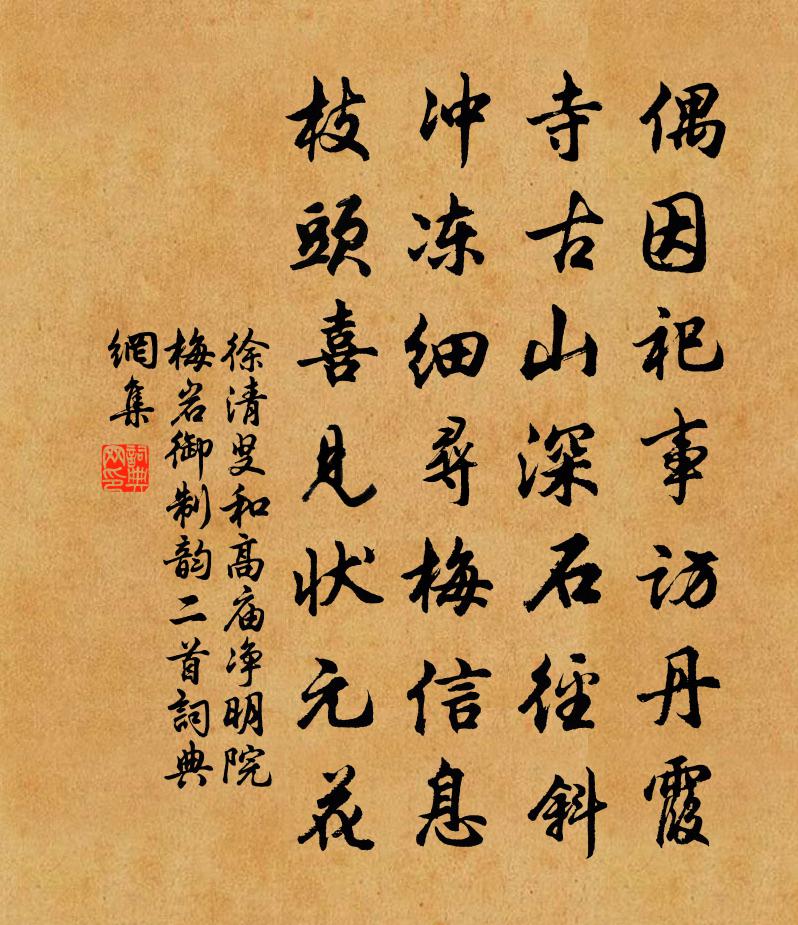 偶因祀事访丹霞
寺古山深石径斜
冲冻细寻梅信息
枝頭喜見状元花
徐清叟和高庙净明院
梅岩御制韵二首詞典
網集
詞典
网印